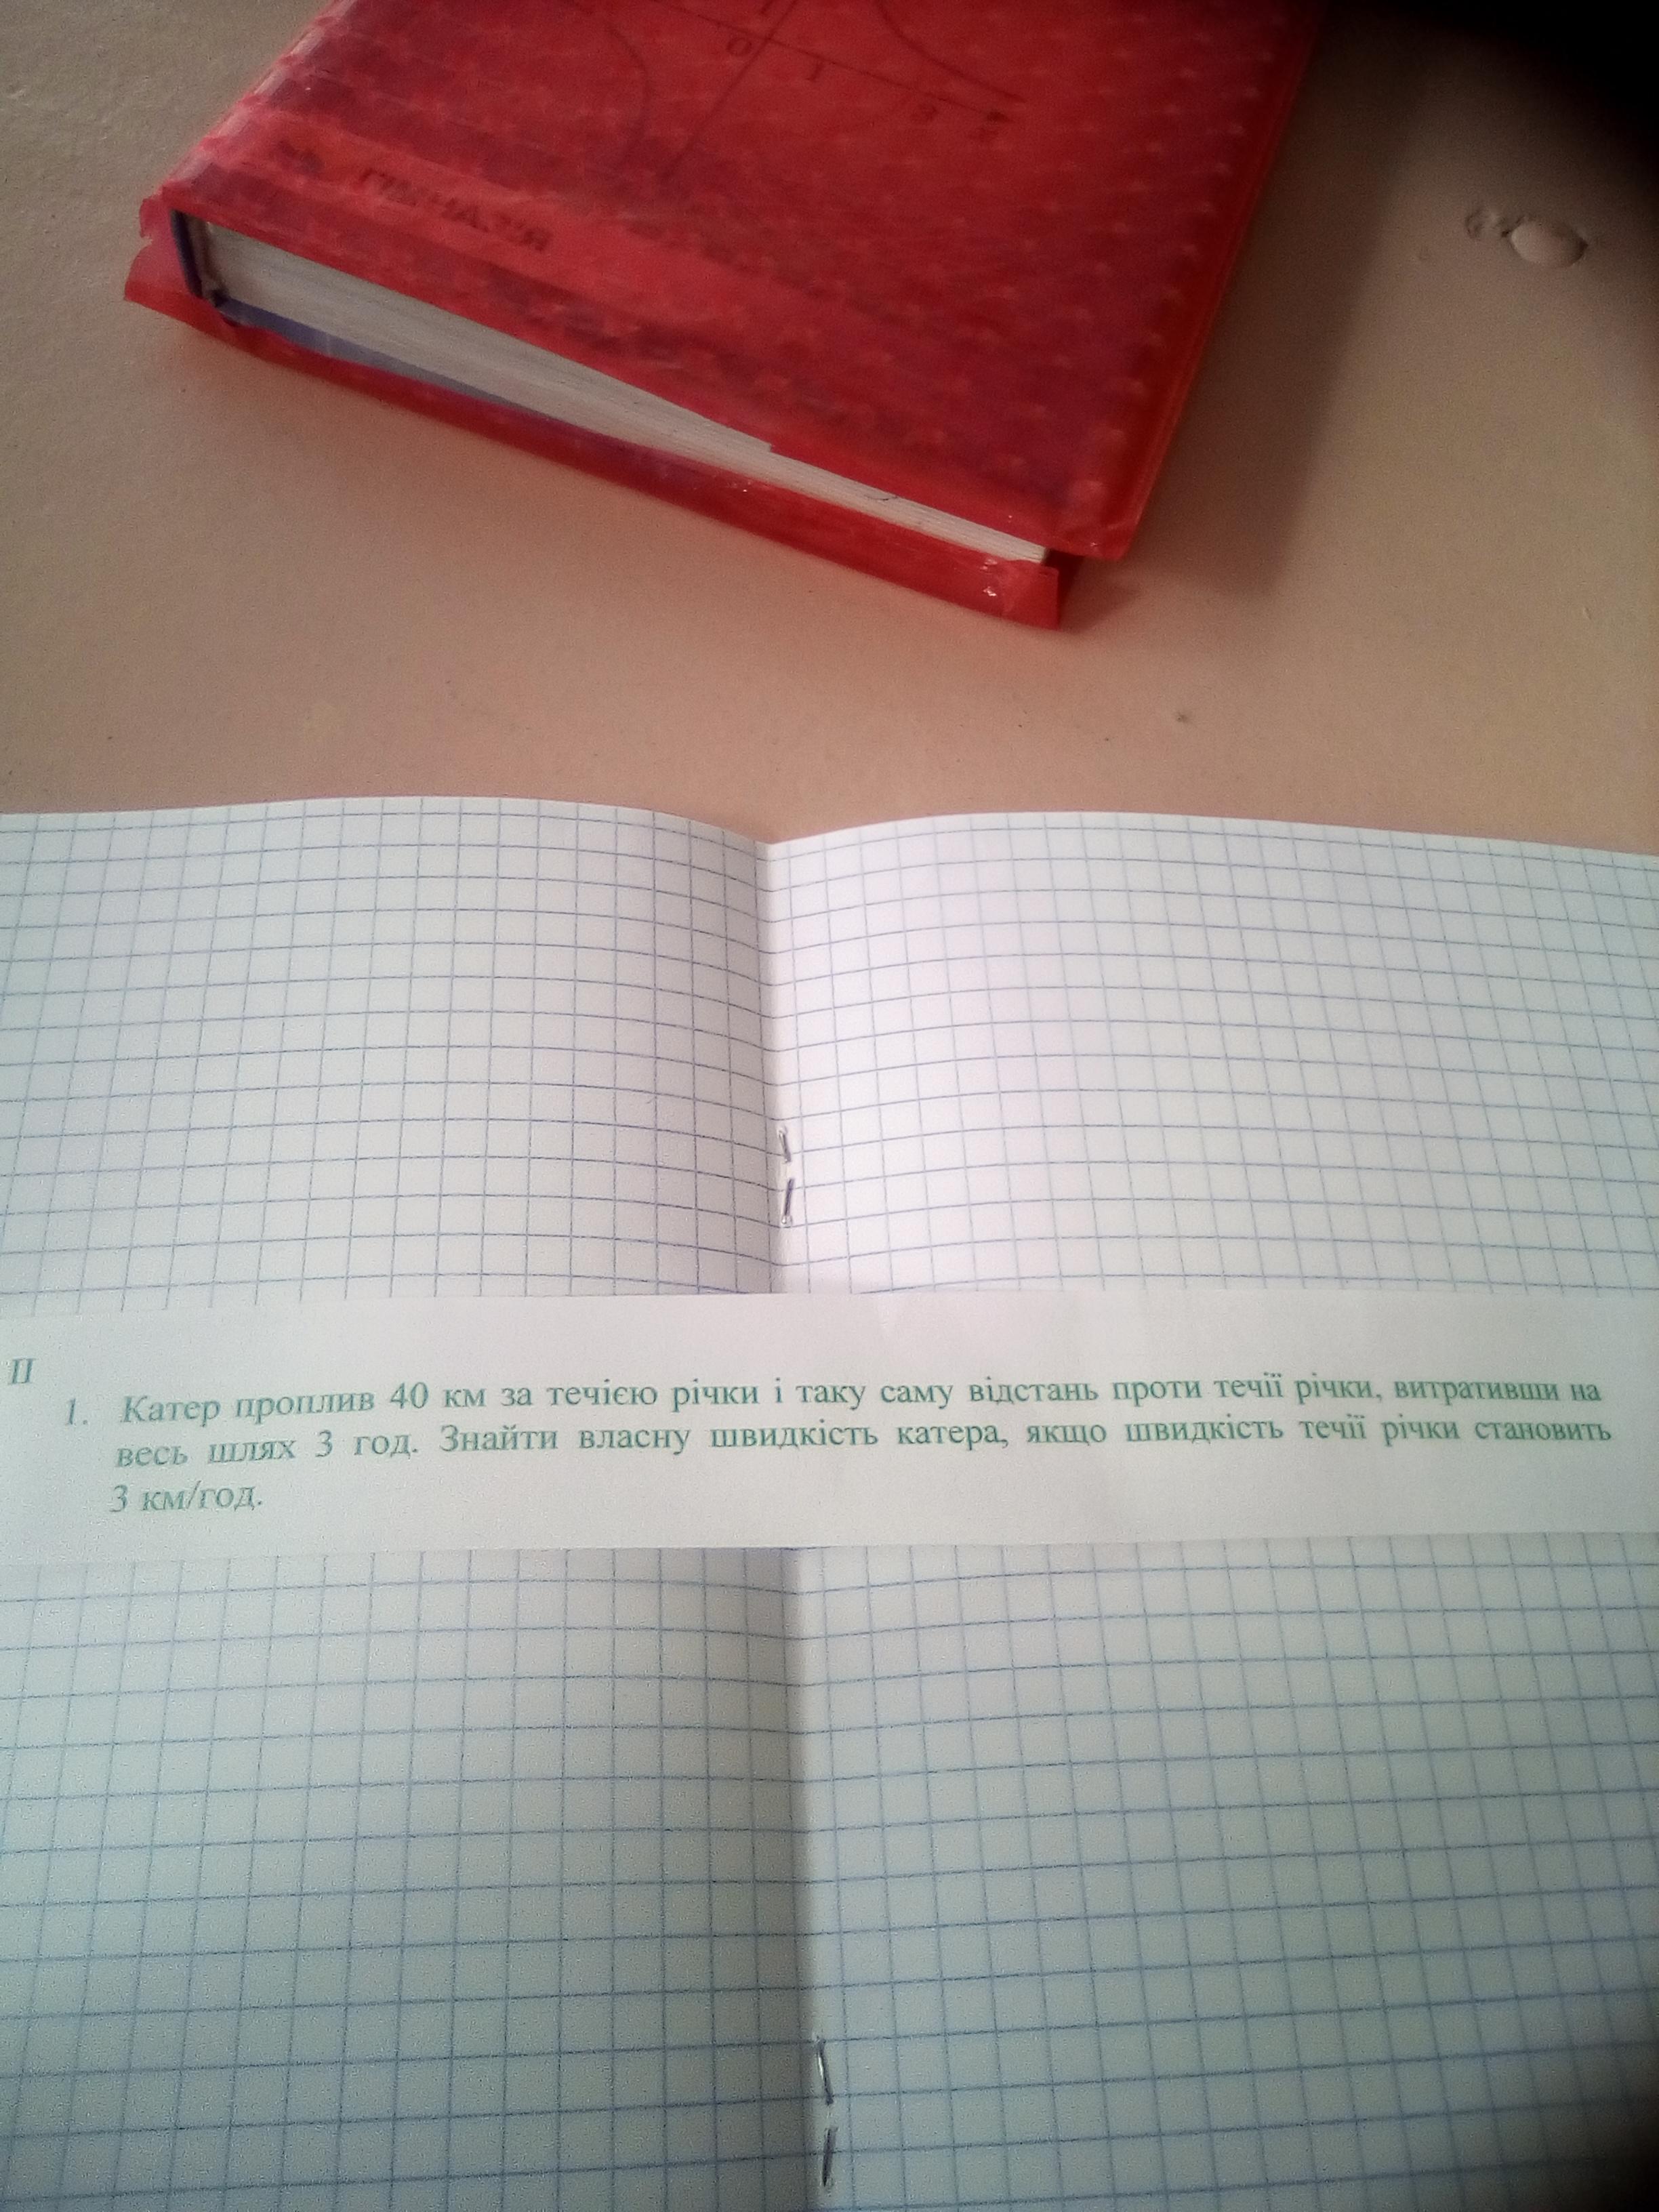 II
1. Катер проплив 40 км за течією річки і таку саму відстань проти течії річки, витративши на
весь шлях 3 год. Знайти власну швидкість катера, якщо швидкість течії річки становить
3 км/год.